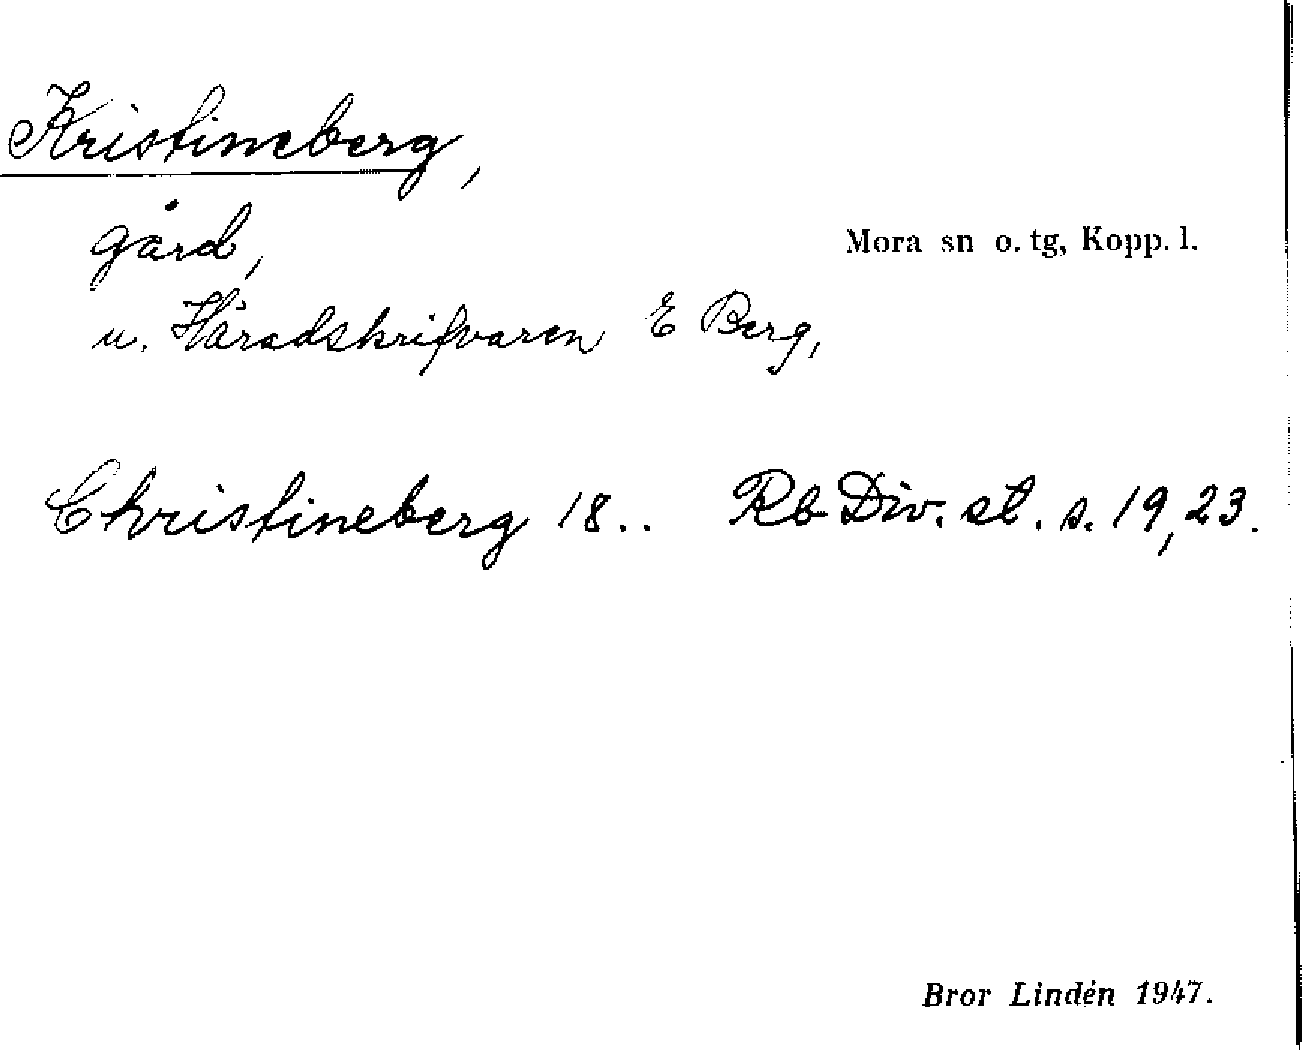 Kristineberg,
gård,
Mora sn o. tg, Kopp. l.
u. Häradskrifvaren E Berg,
Christineberg 18.. Rb Div. st. s. 19, 23.
Bror Lindén 1947.